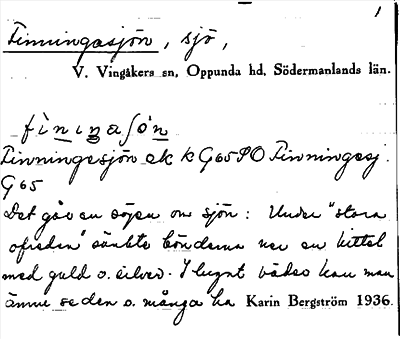 1
Finningasjön, sjö,
V. Vingåkers sn, Oppunda hd, Södermanlands län.
fìnıŋaʃǿn
Finningesjön ek k G65 PO Finningesj.
G65
Det går en sägen om sjön: Under "stora
ofreden" sänkte bönderna ner en kittel
med guld o. silver. I lugnt väder kan man
ännu se den o. många ha Karin Bergström 1936.